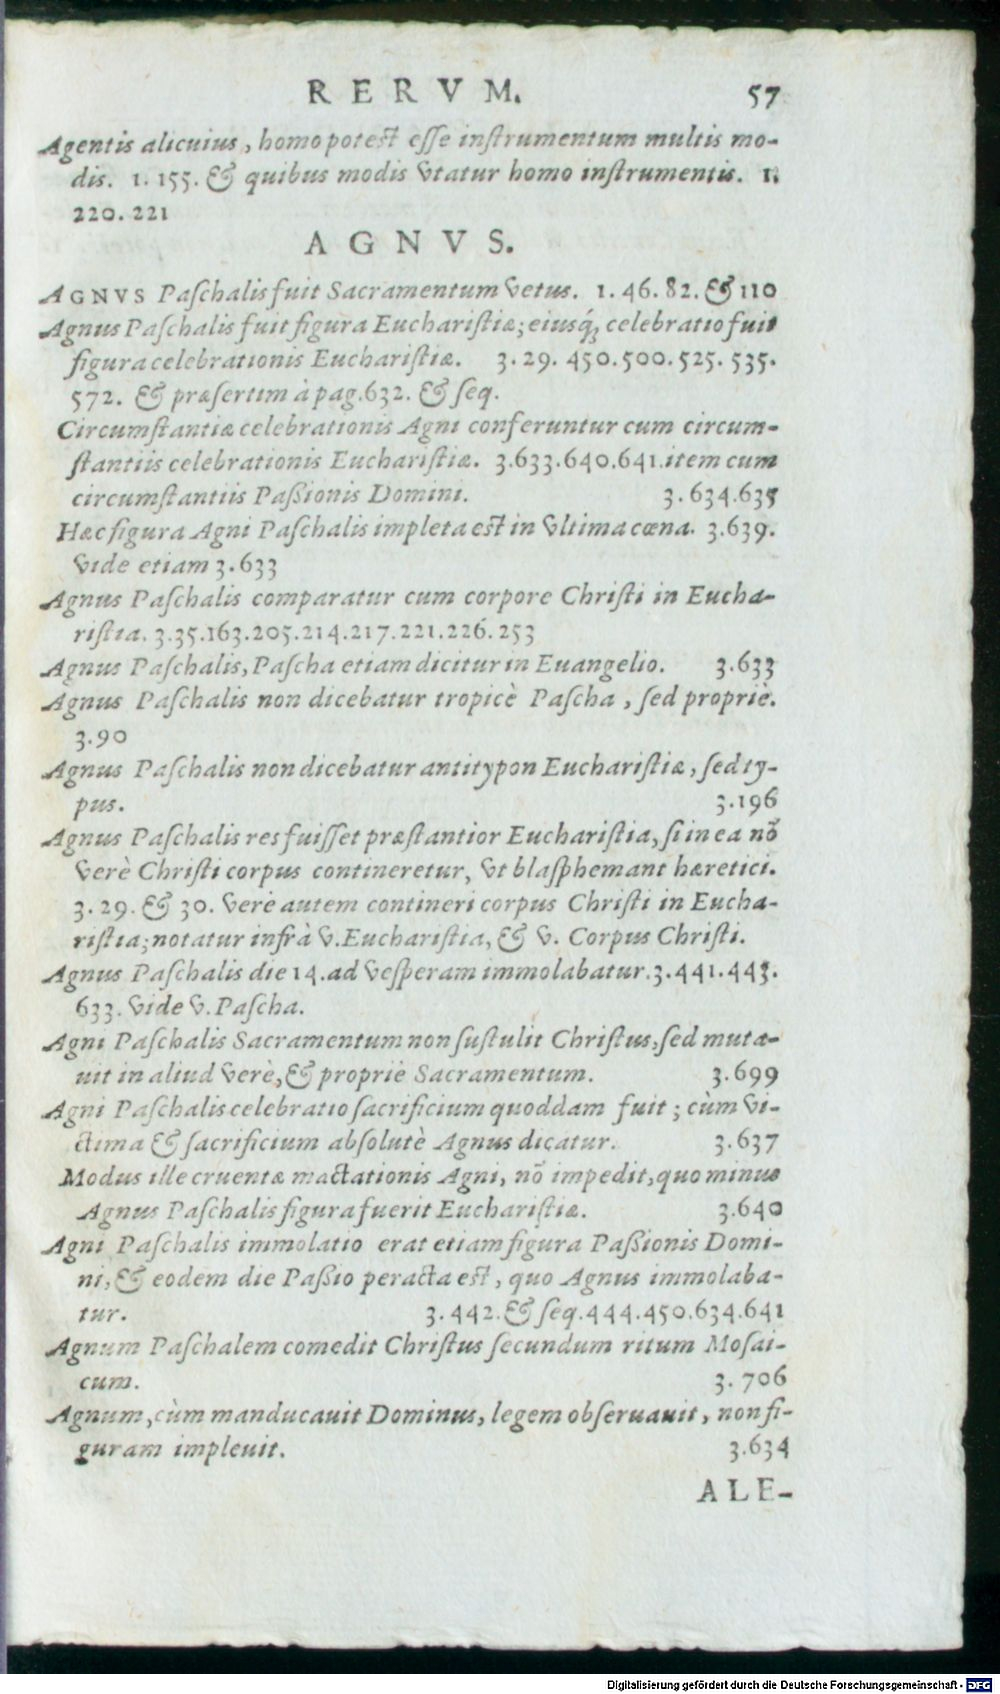 RERVM. 57
Agentis alicuius, homo potest esse instrumentum multis mo-
dis. 1. 155. & quibus modis vtatur homo instrumentis. 1.
220. 221
AGNVS.
AGNVS Paschalis fuit Sacramentum vetus. 1. 46. 82. & 110
Agnus Paschalis fuit figura Eucharistiæ; eiusq́; celebratio fuit
figura celebrationis Eucharistiæ. 3. 29. 450. 500. 525. 535.
572. & præsertim à pag. 632. & seq.
Circumstantiæ celebrationis Agni conferuntur cum circum-
stantiis celebrationis Eucharistiæ. 3. 633. 640. 641. item cum
circumstantiis Paßionis Domini. 3. 634. 635
Hæc figura Agni Paschalis impleta est in vltima cœna. 3. 639.
vide etiam 3. 633
Agnus Paschalis comparatur cum corpore Christi in Eucha-
ristia. 3. 35. 163. 205. 214. 217. 221. 226. 253
Agnus Paschalis, Pascha etiam dicitur in Euangelio. 3. 633
Agnus Paschalis non dicebatur tropicè Pascha, sed propriè.
3. 90
Agnus Paschalis non dicebatur antitypon Eucharistiæ, sed ty-
pus. 3. 196
Agnus Paschalis res fuisset præstantior Eucharistia, si in ea nō
verè Christi corpus contineretur, vt blasphemant hæretici.
3. 29. & 30. verè autem contineri corpus Christi in Eucha-
ristia; notatur infrà v. Eucharistia, & v. Corpus Christi.
Agnus Paschalis die 14. ad vesperam immolabatur. 3. 441. 443.
633. vide v. Pascha.
Agni Paschalis Sacramentum non sustulit Christus, sed muta-
uit in aliud verè, & propriè Sacramentum. 3. 699
Agni Paschalis celebratio sacrificium quoddam fuit; cùm vi-
ctima & sacrificium absolutè Agnus dicatur. 3. 637
Modus ille cruentæ mactationis Agni, nō impedit, quo minus
Agnus Paschalis figura fuerit Eucharistiæ. 3. 640
Agni Paschalis immolatio erat etiam figura Paßionis Domi-
ni, & eodem die Paßio peracta est, quo Agnus immolaba-
tur. 3. 442. & seq. 444. 450. 634. 641
Agnum Paschalem comedit Christus secundum ritum Mosai-
cum. 3. 706
Agnum, cùm manducauit Dominus, legem obseruauit, non fi-
guram impleuit. 3. 634
ALE-
Digitalisierung gefördert durch die Deutsche Forschungsgemeinschaft - DFG